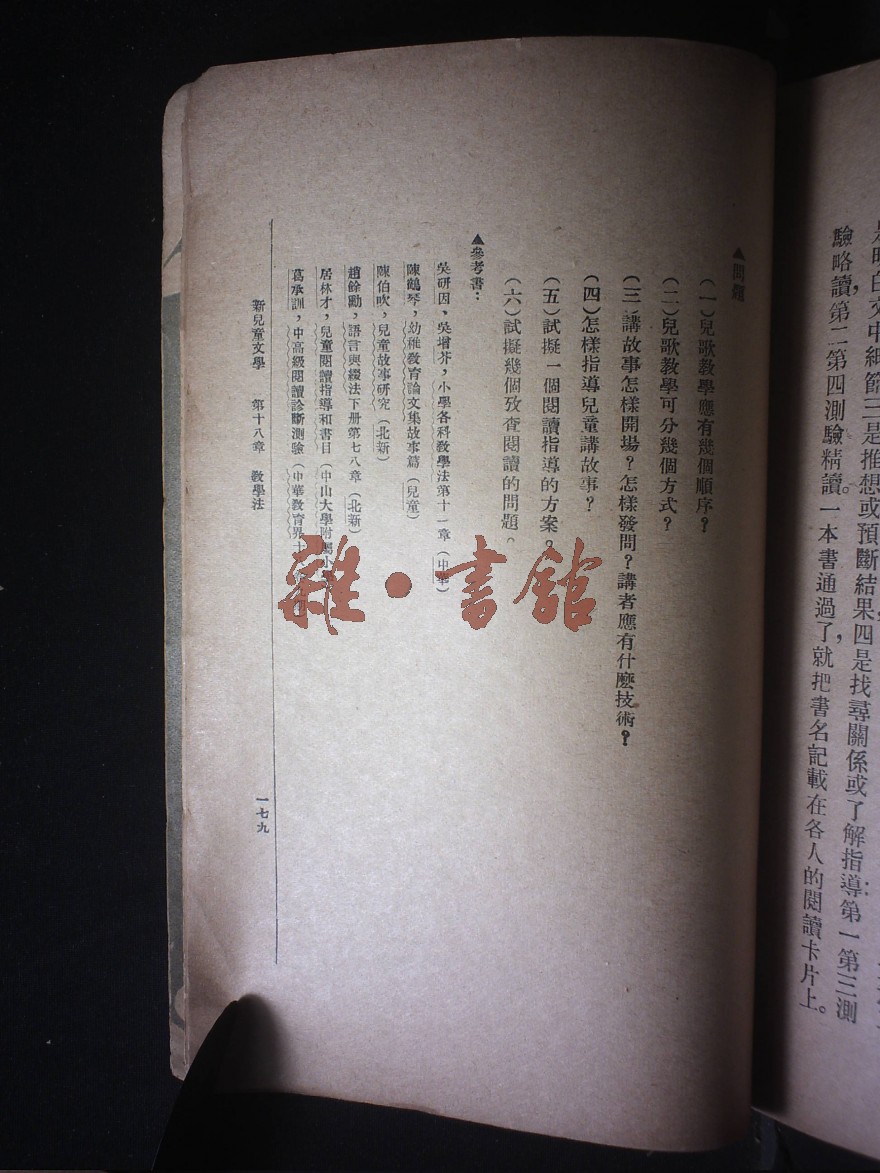 驗略讀,第二第四測驗精讀。一本書通過了,就把書名記載在各人的閱讀卡片上。
▲問題
(一)兒歌教學應有幾個順序?
(二)兒歌教學可分幾個方式?
(三)講故事怎樣開場?怎樣發問?講者應有什麽技術?
(四)怎樣指導兒童講故事?
(五)試擬一個閱讀指導的方案?
(六)試擬幾個攷查閱讀的問題。
▲參考書:
吳研因、吳增芥,小學各科敎學法第十一章(中華)
陳鶴琴,幼稚敎育論文集故事篇(兒童)
陳伯吹,兒童故事研究(北新)
趙餘勳,語言與綴法下册第七八章(北新)
居林才,兒童閱讀指導和書目(中山大學附屬小
葛承訓,中高級閱讀診斷測驗(中華敎育界十
新兒童文學 第十八章 敎學法
一七九
雜·書館